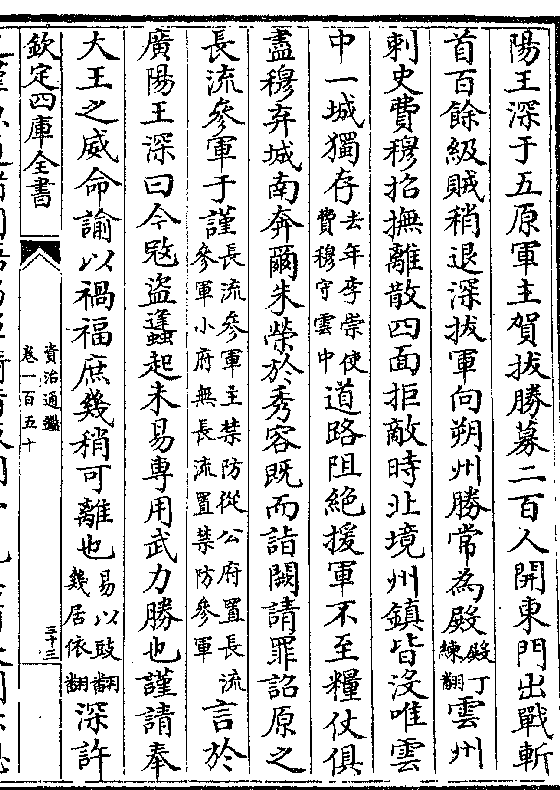 陽王深于五原軍主賀拔勝募二百人開東門出戰斬
首百餘級賊稍退深拔軍向朔州勝常為殿殿丁練翻雲州
刺史費穆招撫離散四面拒敵時北境州鎮皆沒唯雲
中一城獨存去年李崇使費穆守雲中道路阻絕援軍不至糧仗俱
盡穆弃城南奔爾朱榮於秀容既而詣闕請罪詔原之
長流參軍于謹長流參軍主禁防從公府置長流參軍小府無長流置禁防參軍言於
廣陽王深曰今㓂盜蠭起未易專用武力勝也謹請奉
大王之威命諭以禍福庶幾稍可離也易以豉翻幾居依翻深許
欽定四庫全書
資治通鑑
卷一百五十
三十三